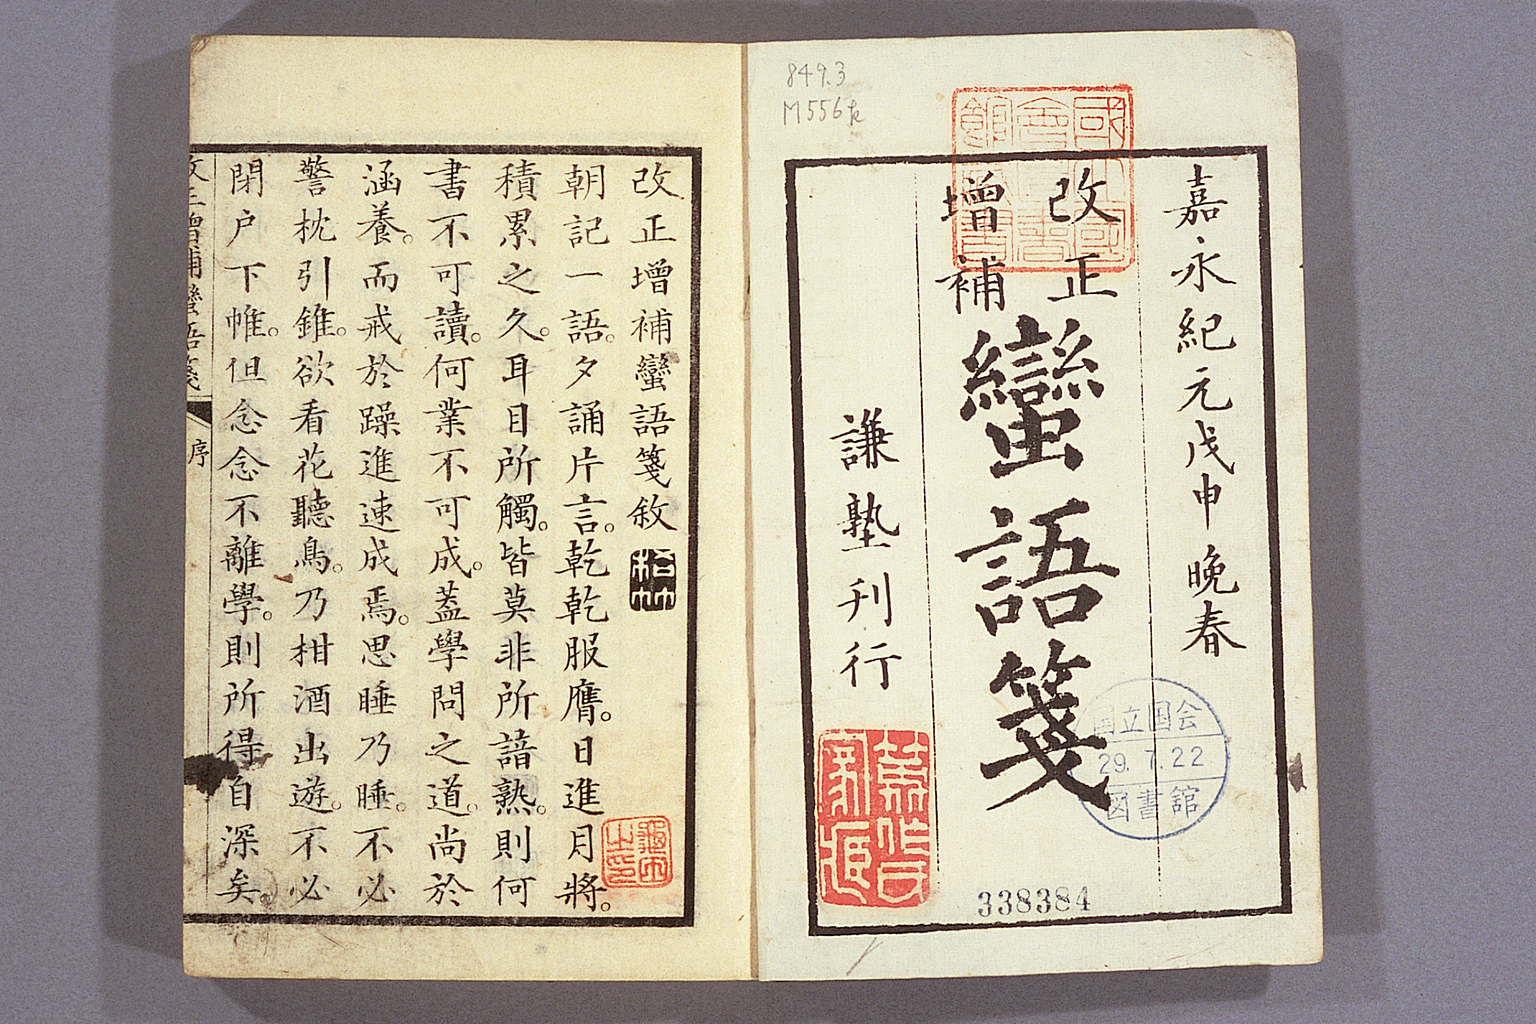 849.3
M556k
嘉永紀元戊申 晩春
改正
增補
蠻語箋
謙塾刊行
国立国会
29.7.22
図書館
338384
改正增補蠻語箋敘
朝記一語。夕誦片言。乾乾服膺。日進月將。
積累之久。耳目所觸。皆莫非所諳熟。則何
書不可讀。何業不可成。蓋學問之道。尚於
涵養。而戒於躁進速成焉。思睡乃睡。不必
警枕引錐。欲看花聽鳥。乃柑酒出遊。不必
閉户下帷。但念念不離學。則所得自深矣。
改正增補蠻語箋
序